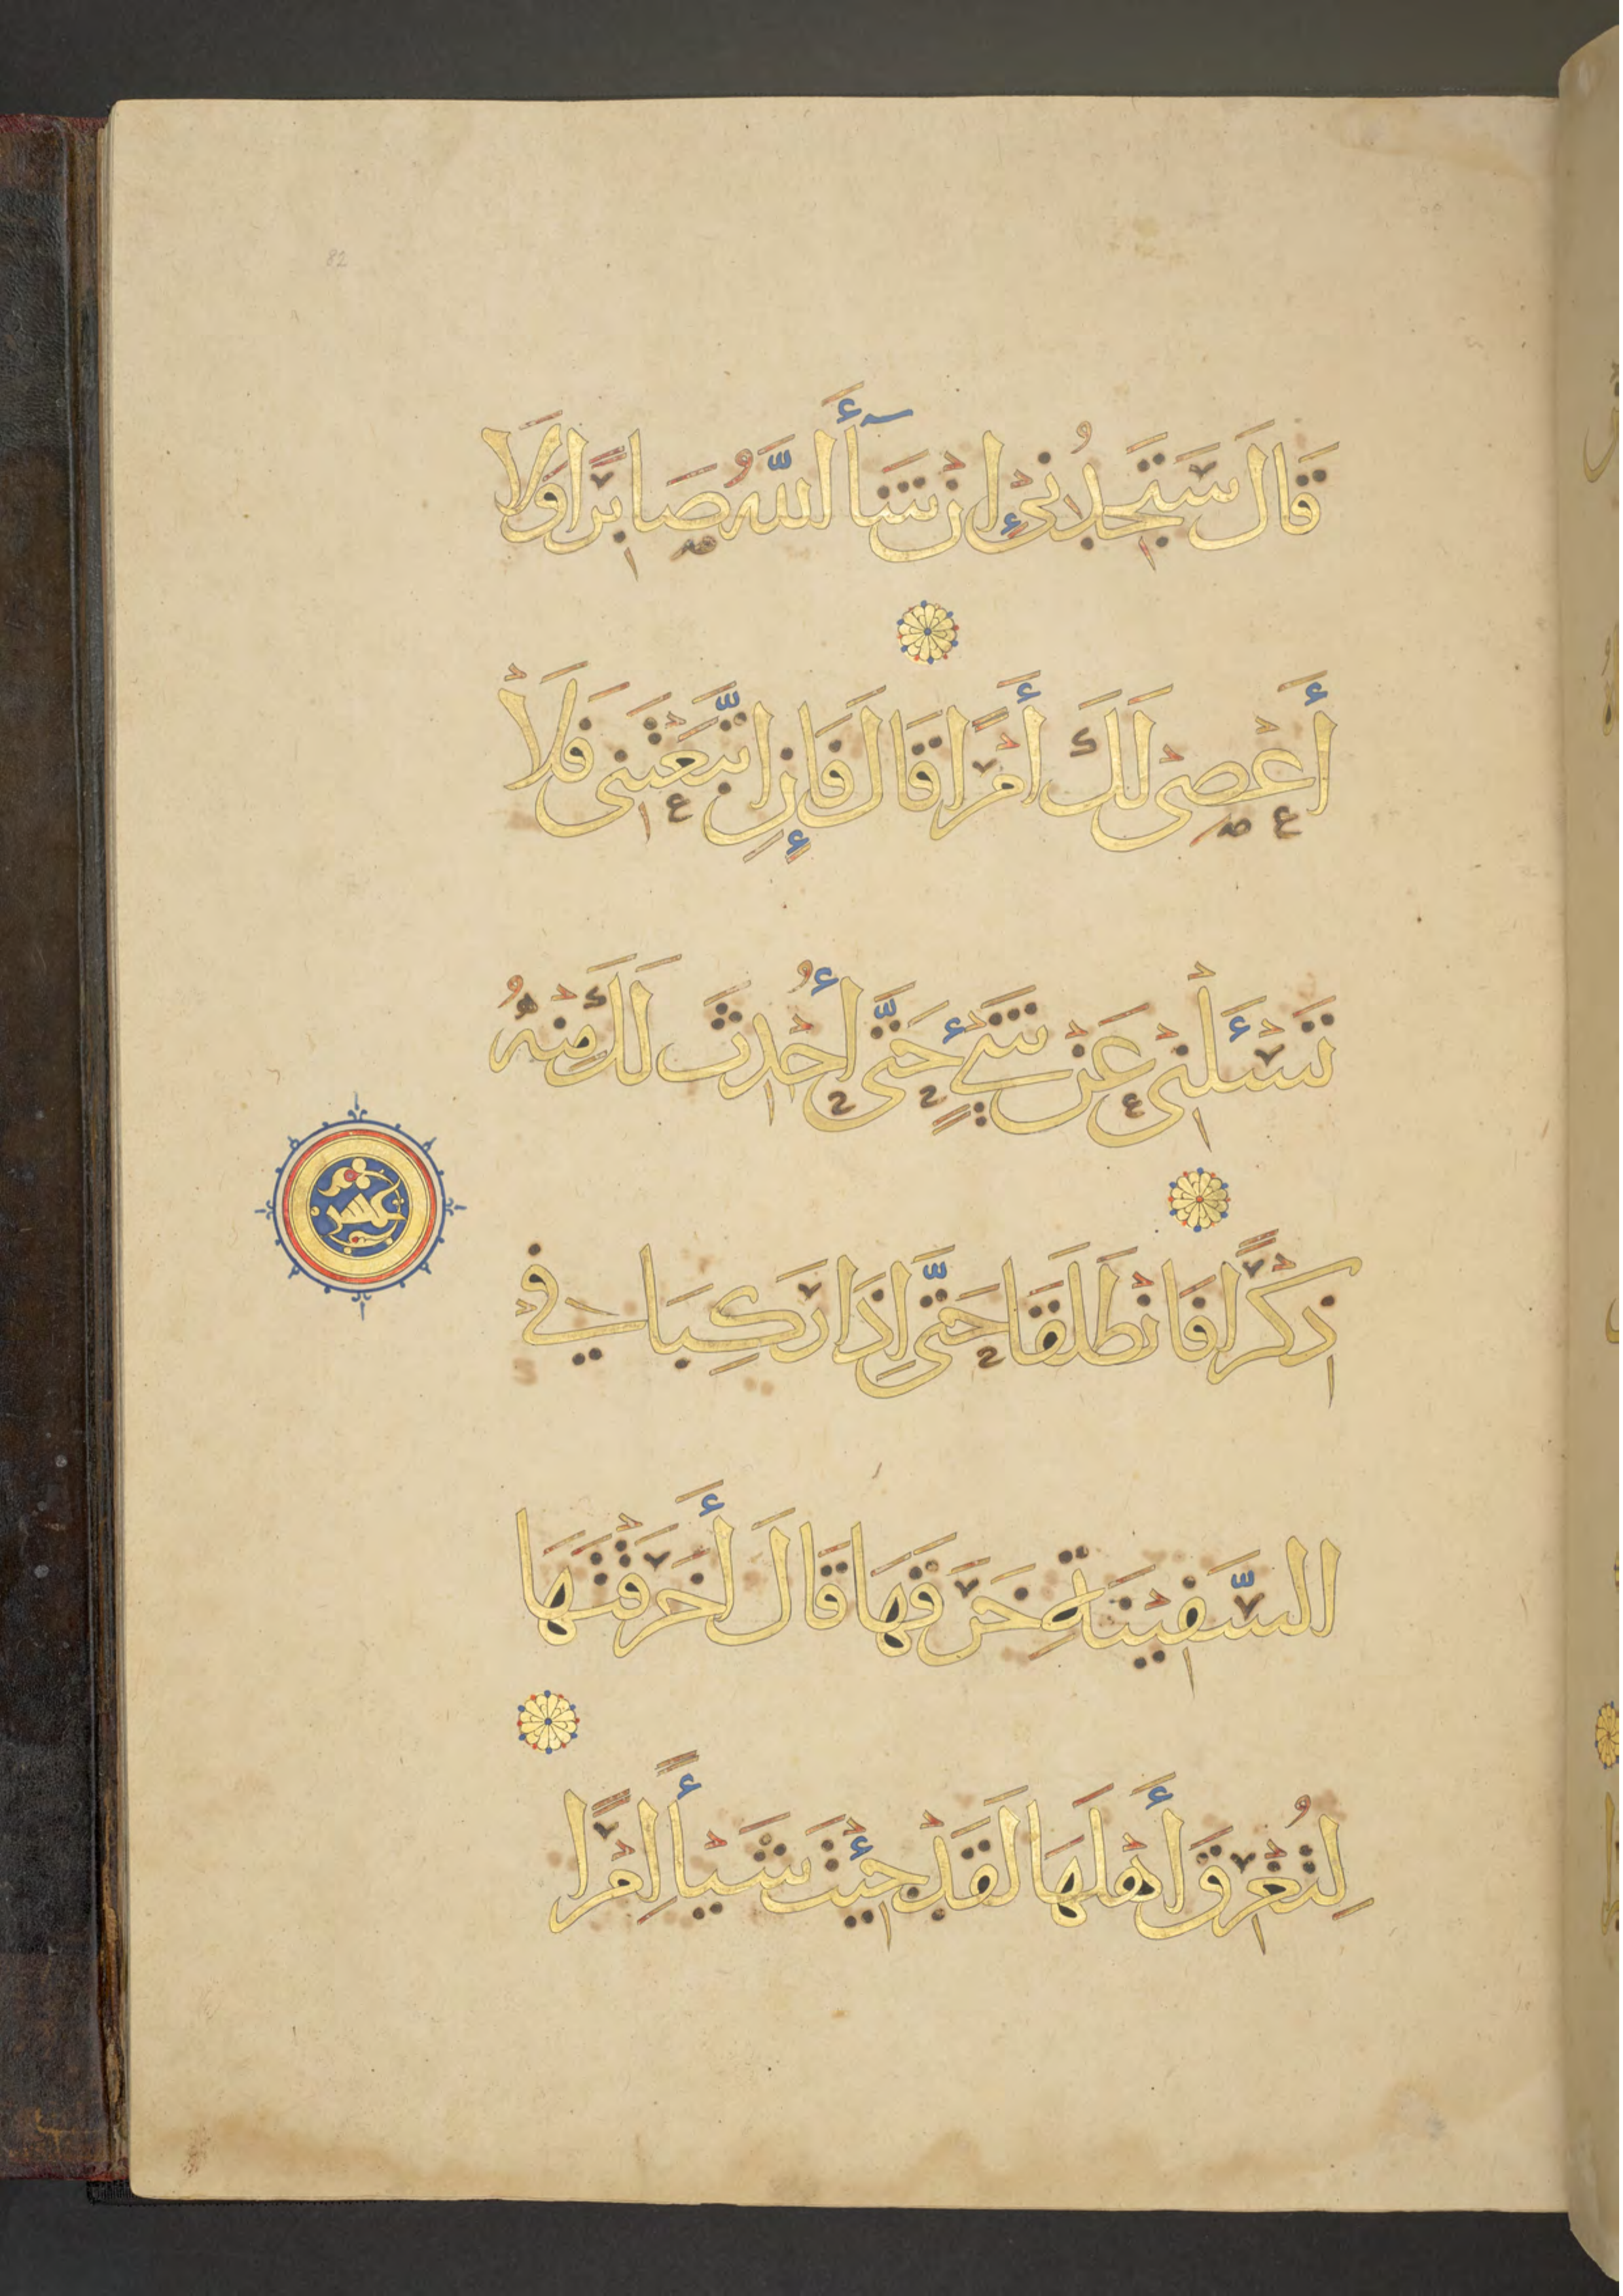 82
قَالَ سَتَجِدُنِىٓ إِنْ شَآءَ اللَّهُ صَابِرًا وَلَا
أَعْصِى لَكَ أَمْرًا قَالَ فَإِنِ اتَّبَعْتَنِى فَلَا
تَسْـَٔلْنِى عَنْ شَىْءٍ حَتَّى أُحْدِثَ لَكَ مِنْهُ
ذِكْرًا فَانْطَلَقَا حَتَّى إِذَا رَكِبَا فِي
السَّفِيْنَةِ خَرَقَهَا قَالَ أَخَرَقْتَهَا
لِتُغْرِقَ أَهْلَهَا لَقَدْ جِئْتَ شَيْـًٔا إِمْرًا